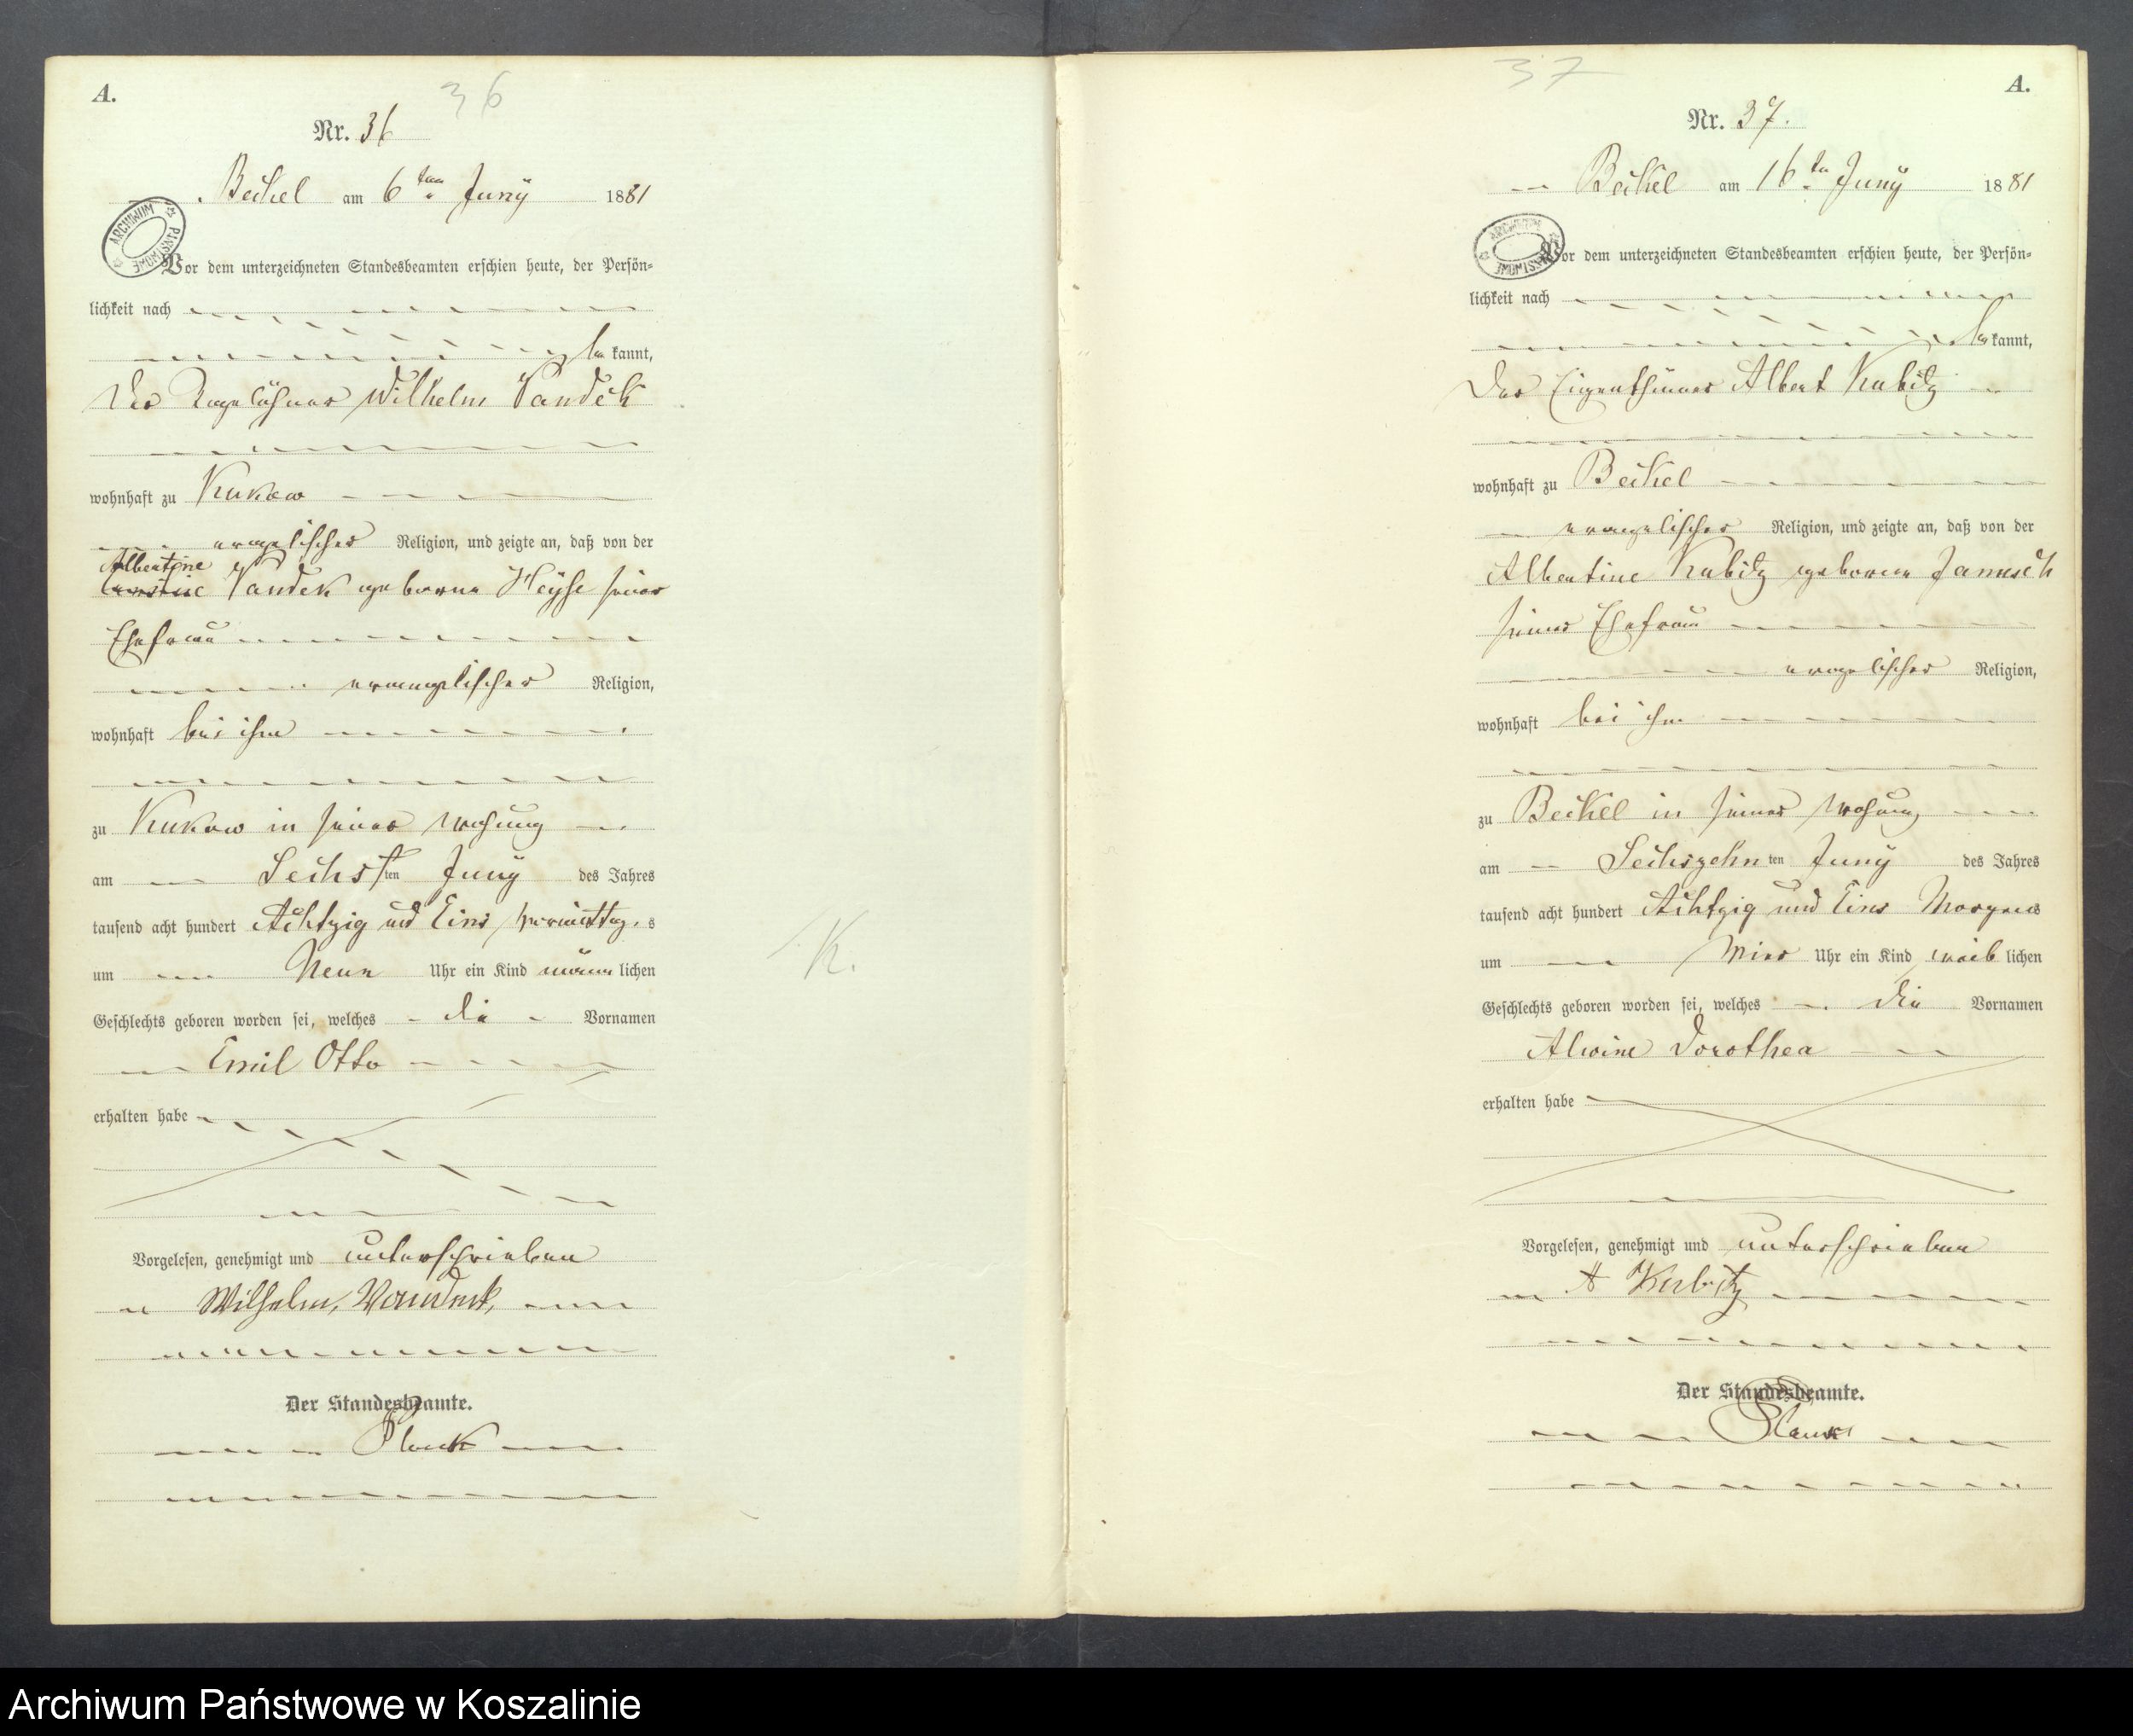 A.
36
Nr. 36
Beckel am 6ten Juny 1881
ARCHIWUM PAŃSTWOWE
Vor dem unterzeichneten Standesbeamten erschien heute, der Persön=
lichkeit nach
be kannt,
Der Tagelöhner Wilhelm Vandek
wohnhaft zu Kukow
evangelischer Religion, und zeigte an, daß von der
Albertine
Vandek geborne Heyse seiner
Ehefrau
evangelischer Religion,
wohnhaft bei ihm
zu Kukow in seiner Wohnung
am Sechsten Juny des Jahres
tausend acht hundert Achtzig und Eins Vormittag s
um Neun Uhr ein Kind männ lichen
Geschlechts geboren worden sei, welches die Vornamen
Emil Otto
erhalten habe
Vorgelesen, genehmigt und unterschrieben
Wilhelm Vandek
Der Standesbeamte.
K.
37
A.
Nr. 37.
Beckel am 16ten Juny 1881
ARCHIWUM PAŃSTWOWE
Vor dem unterzeichneten Standesbeamten erschien heute, der Persön=
lichkeit nach
be kannt,
Der Eigenthümer Albert Kubitz
wohnhaft zu Beckel
evangelischer Religion, und zeigte an, daß von der
Albertine Kubitz geborene Janusch
seiner Ehefrau
evangelischer Religion,
wohnhaft bei ihm
zu Beckel in seiner Wohnung
am Sechszehn ten Juny des Jahres
tausend acht hundert Achtzig und Eins Morgens
um Vier Uhr ein Kind weib lichen
Geschlechts geboren worden sei, welches die Vornamen
Alwine Dorothea
erhalten habe
Vorgelesen, genehmigt und unterschrieben
A Kubitz
Der Standesbeamte.
Archiwum Państwowe w Koszalinie